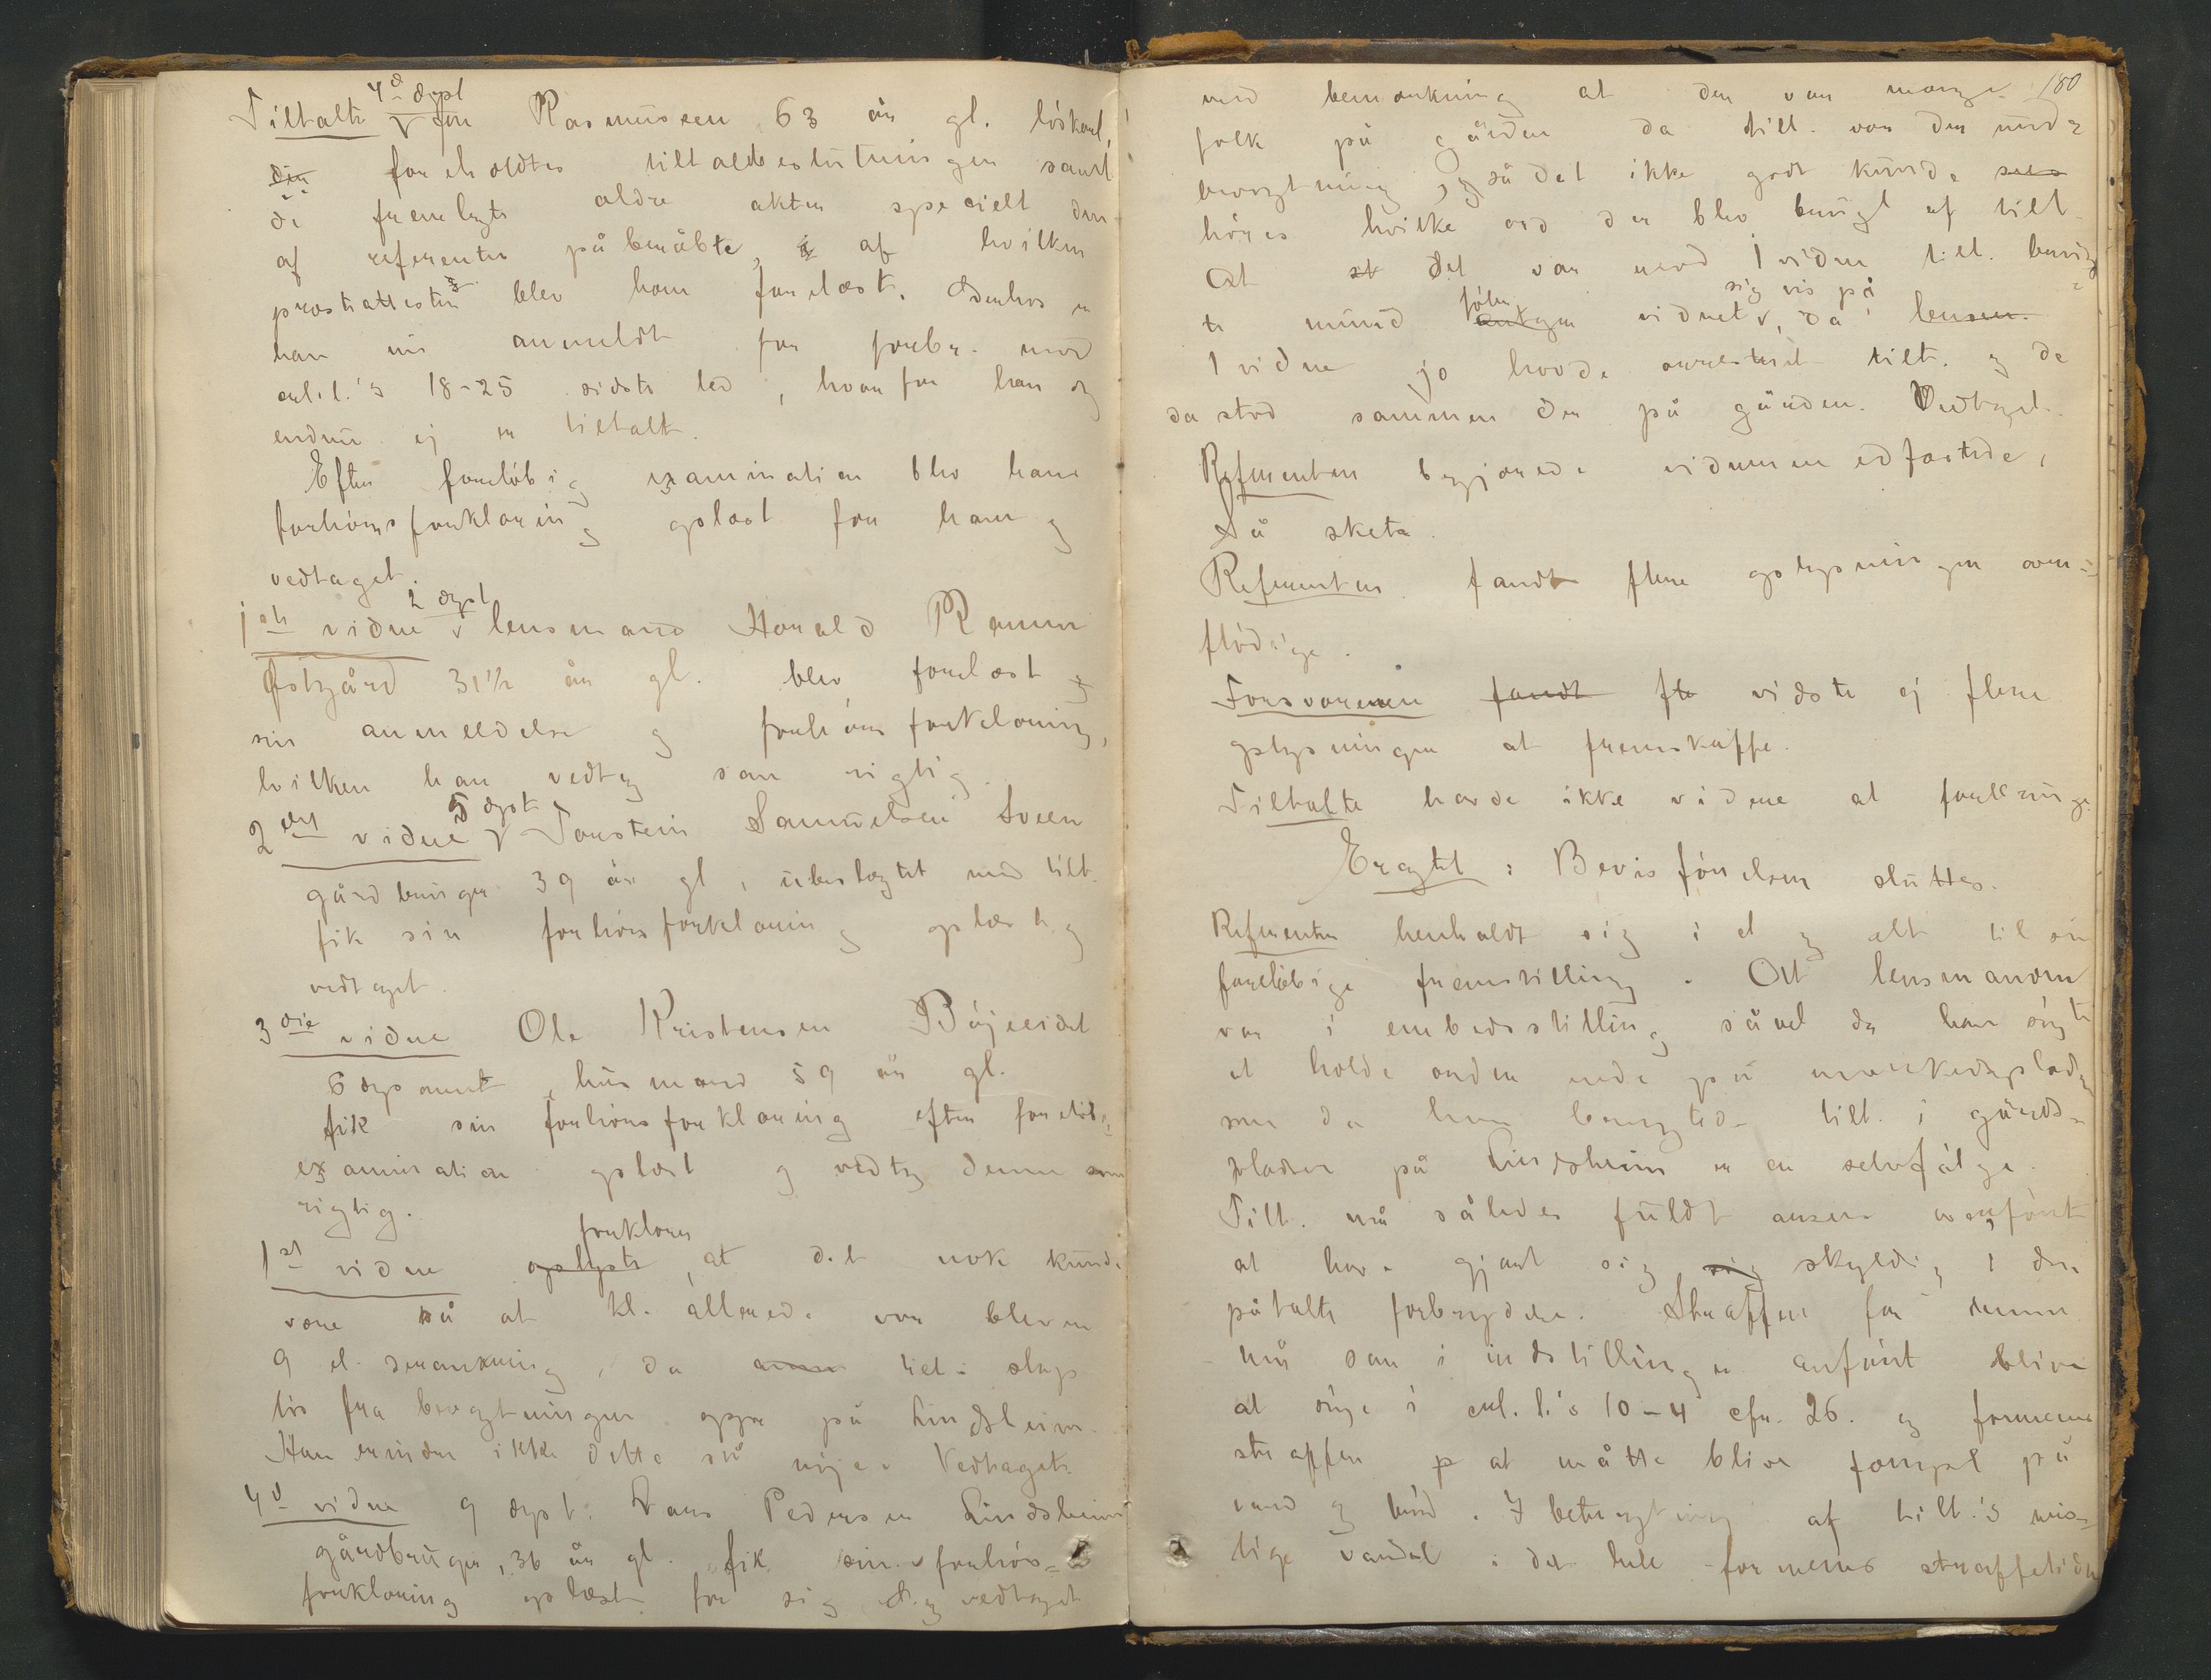 4de dept
Tiltalte Jon Rasmussen 63 år gl. löskarl,
den foreholdtes tiltalebeslutningen samt
de fremlagte ældre akter specielt den
af referenten påberåbte, af hvilken
præstiattesten blev ham forelæst. Desuden er
han nu anmeldt for forbr. mod
crl.l.'s 18-25 sidste led, hvorfor han dog
endnu ej er tiltalt.
Efter foreløbig examination blev hans
forhörsforklaring oplæst for ham og
vedtaget.
2 dept
1ste vidne lensmand Harald Ramm
Østgård 31½ år gl. blev forelæst
sin anmeldelse og forhörsforklaring,
hvilken han vedtog som rigtig.
5 dept
2det vidne Torstein Samuelsen Sveen
gårdbruger 39 år gl, ubeslægtet med tilt.
fik sin forhörsforklaring oplæst og
vedtaget.
3die vidne Ole Kristensen Böjeeidet
6 deponent, husmand 59 år gl.
fik sin forhörsforklaring efter foreløb.
examination oplæst og vedtog denne som
rigtig.
forklarer
1st vidne oplyste, at det nok kunde
være så at kl. allerede var bleven
9 el. deromkring, da tilt. slap
lös fra bevogtningen oppe på Lindsheim.
Han erindrer ikke dette så nöje. Vedtaget.
4d vidne 9 dept. Hans Pedersen Lindsheim
gårdbruger, 36 år gl. fik sin forhörs=
forklaring oplæst for sig og vedtaget
180
med bemærkning at der var mange
folk på gården da tilt. var der under
bevogtning, og så det ikke godt kunde sees
höres hvilke ord der blev brugt af tilt.
At at det var mod 1 vidne tilt. brug=
sig vis på
te mund föler vidnet, da lensm.
1 vidne jo havde arresteret tilt. og de
da stod sammen der på gården. Vedtaget.
Referenten begjærede vidnerne edfæstede,
Så skete.
Referenten fandt flere oplysninger over=
flödige.
Forsvareren fandt fle vidste ej flere
oplysninger at fremskaffe.
Tiltalte havde ikke vidne at forlange.
Eragtet: Bevisförelsen sluttes.
Referenten henholdt sig i et og alt til sin
foreløbige fremstilling. At lensmanden
var i embedsstilling såvel da han sögte
at holde orden nede på markedspladsen
som da han bevogtede tilt. i gårds=
pladsen på Lindsheim er en selvfölge.
Tilt. må således fuldt ansees overfört
at have gjort sig sig skyldig i den
påtalte forbrydelse. Straffen for denne
må som i indstillingen anfört blive
at söge i crl. l.'s 10-4 cfr. 26. og formenes
straffen p at måtte blive fængsel på
vand og bröd. I betragtning af tilt.'s mis=
lige vandel i det hele formenes straffetiden